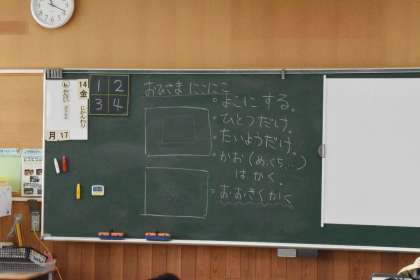 14
金
月
17
1 2
3 4
おひさま にこにこ
。よこに する。
。ひとつだけ。
。たいようだけ。
。かお(め,くち…)
は かく。
。おおきくかく